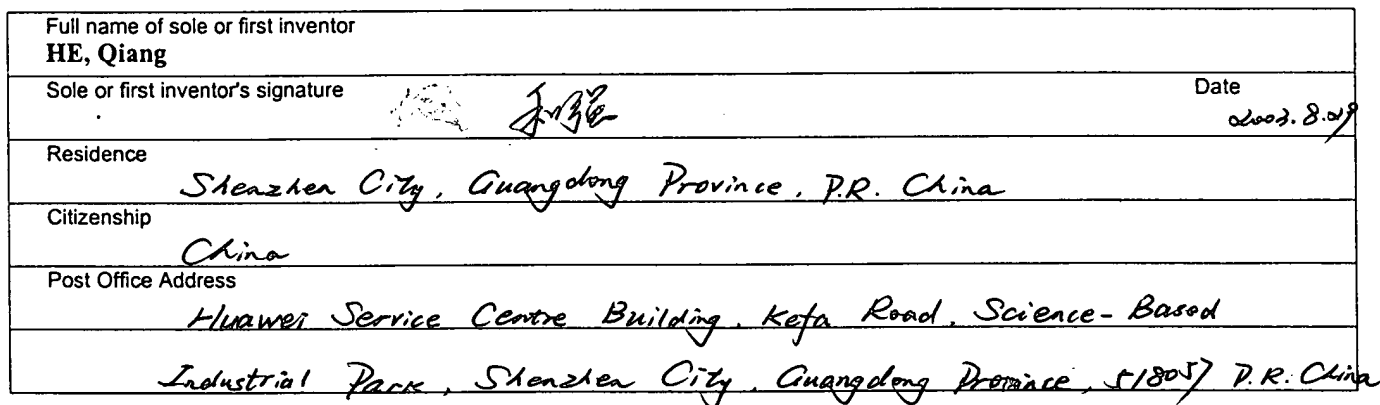 Full name of sole or first inventor
HE, Qiang
Sole or first inventor's signature
和强
Date
2003.8.29
Residence
Shenzhen City, Guangdong Province, P.R. China
Citizenship
China
Post Office Address
Huawei Service Centre Building, Kefa Road, Science-Based
Industrial Park, Shenzhen City, Guangdong Province, 518057 P.R. China